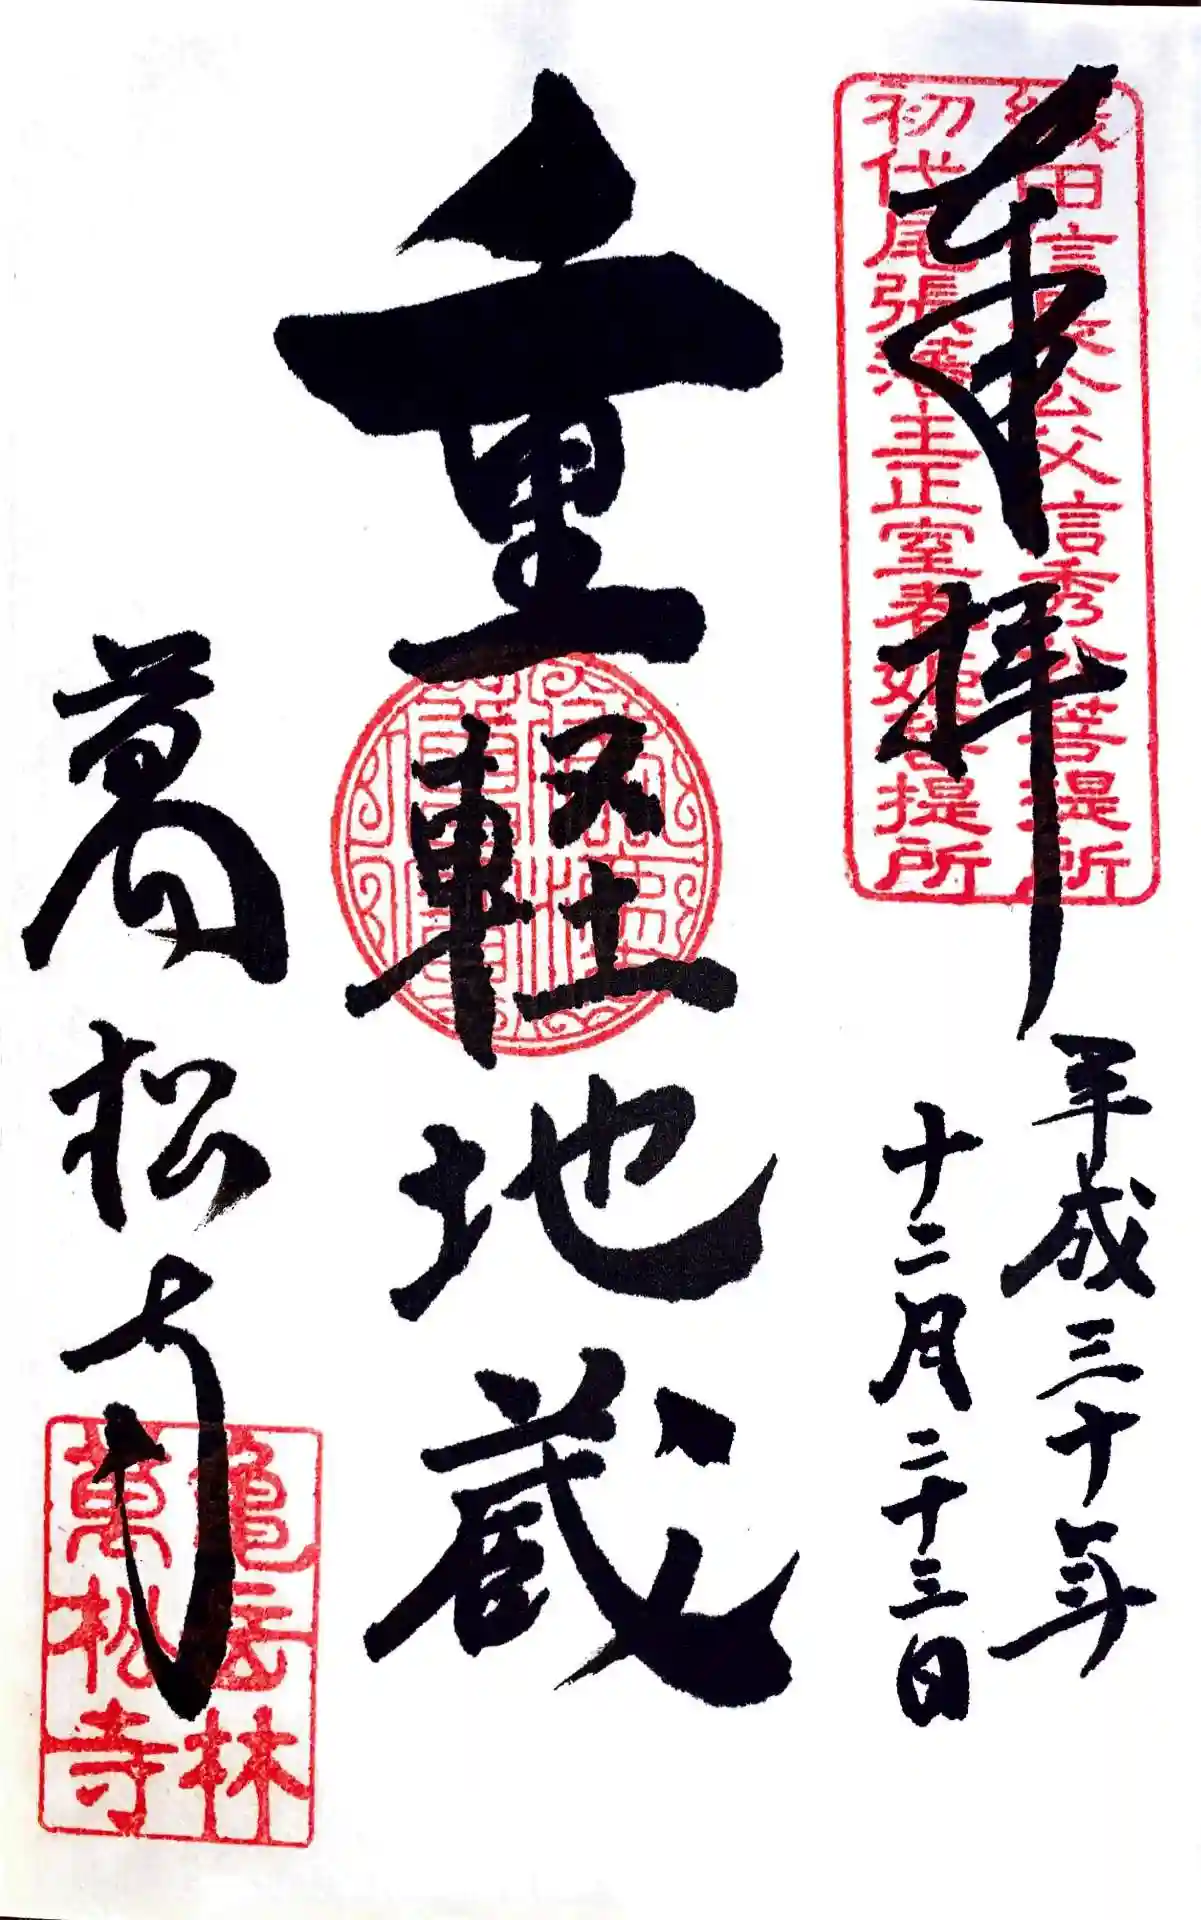 奉拝
織田信長公父信秀公菩提所
初代尾張藩主正室春姫菩提所
平成三十年
十二月二十三日
重軽地蔵
萬松寺
亀岳林
萬松寺